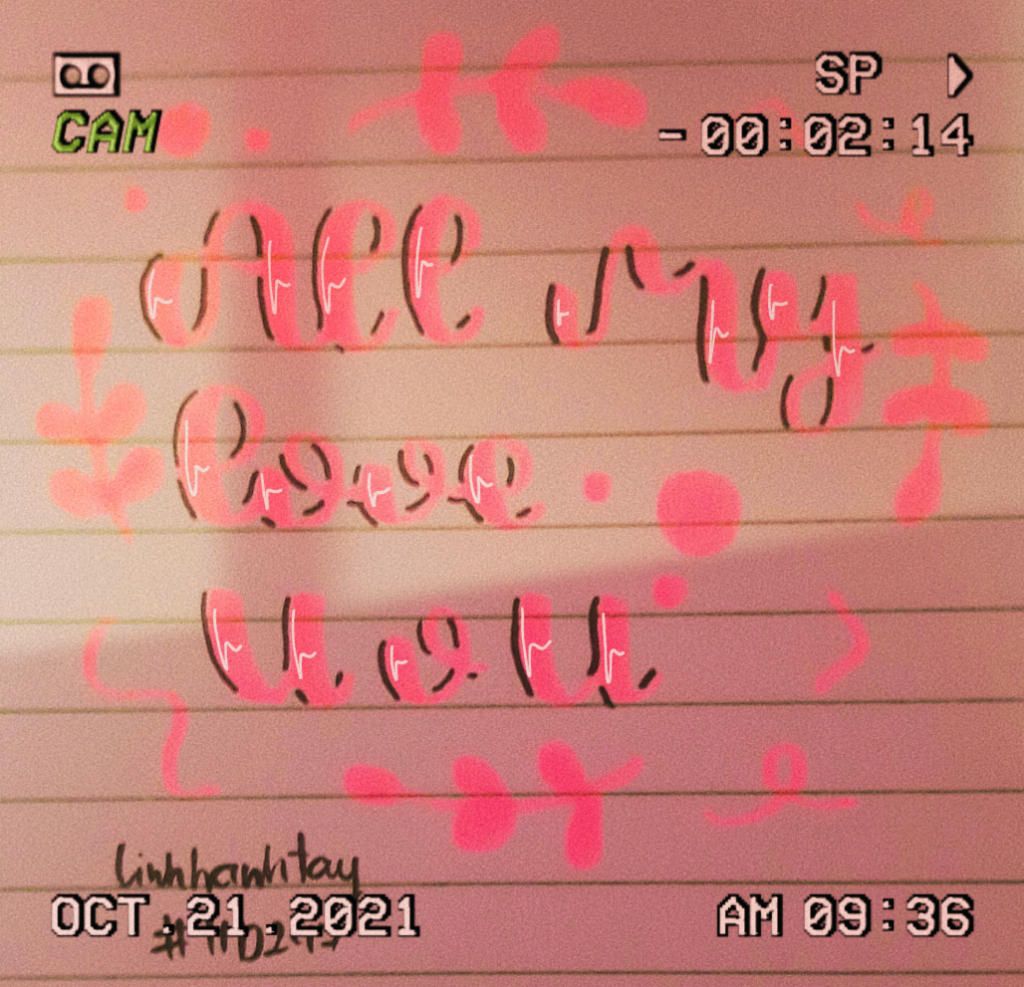 SP
CAM
-00:02:14
All My
love
You
linhhanhtay
OCT.21.2021 AM 09:36